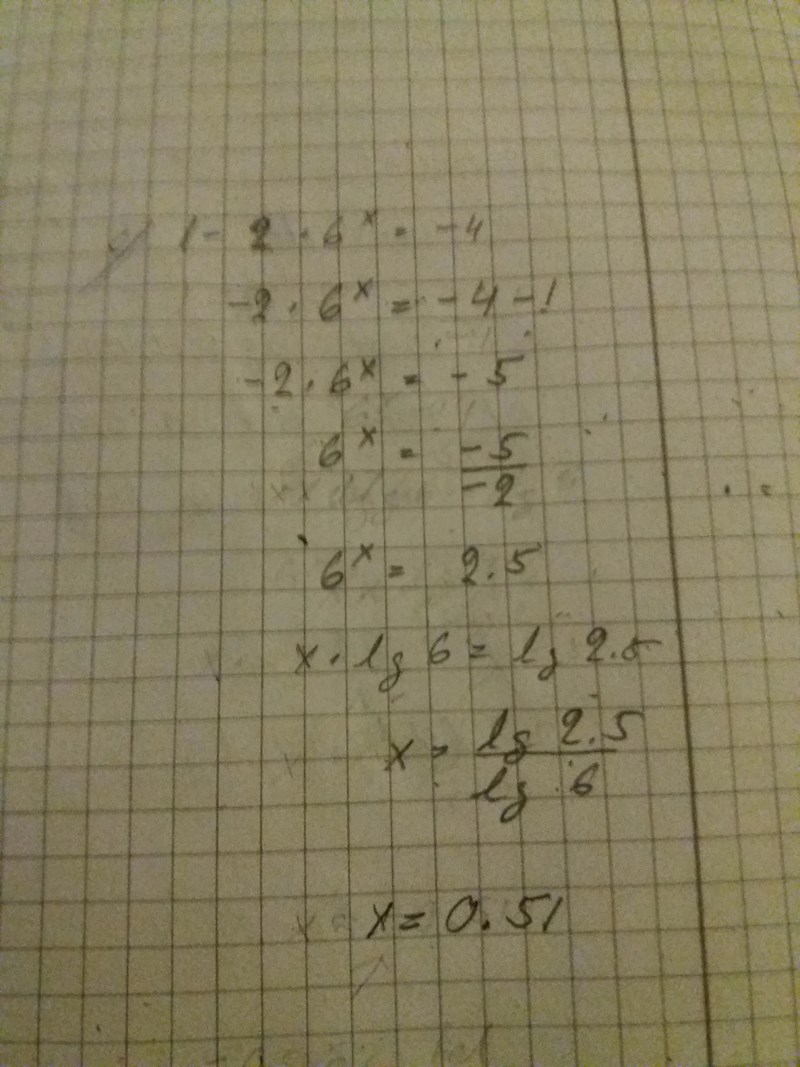 1 - 2 · 6^x = -4
-2 · 6^x = -4 -1
-2 · 6^x = -5
6^x = -5/-2
6^x = 2.5
x · lg 6 = lg 2.5
x = lg 2.5/lg 6
x = 0.51